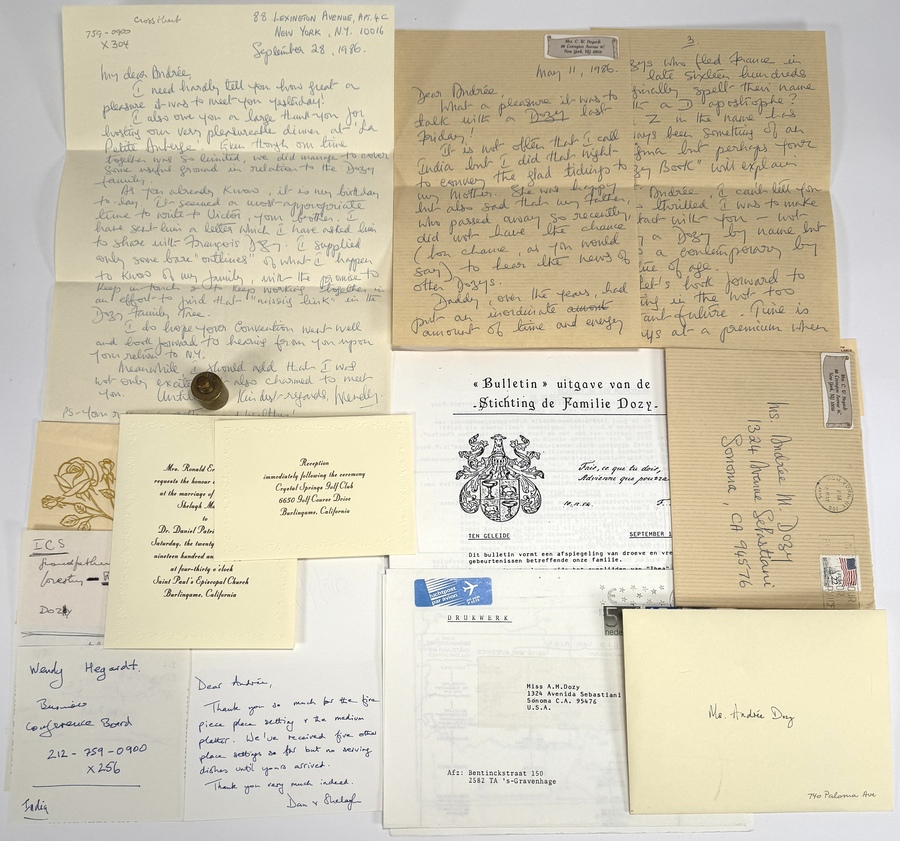 759-0900
X 304
88 LEXINGTON AVENUE, APT. 4C
NEW YORK, N.Y. 10016
September 28, 1986.
My dear Andrée,
I need hardly tell you how great a
pleasure it was to meet you yesterday!
I also owe you a large thank-you for
hosting our very pleasureable dinner at "La
Petite Auberge". Even though our time
together was so limited, we did manage to cover
some useful ground in relation to the Dozy
family.
As you already know, it is my birthday
to-day. It seemed a most appropriate
time to write to Victor, your brother. I
have sent him a letter which I have asked him
to share with François Dozy. I supplied
only some bare "outlines" of what I happen
to know of my family, with the promise to
keep in touch & to keep working together in
an effort to find that "missing link" in the
Dozy Family Tree.
I do hope your Convention went well
and look forward to hearing from you upon
your return to N.Y.
Meanwhile I should add that I was
not only excited but also charmed to meet
you. Kindest regards, Wendy
May 11, 1986.
Dear Andrée,
What a pleasure it was to
talk with a Dozy last
Friday!
It is not often that I call
India but I did that night
to convey the glad tidings to
my Mother. She was happy
but also sad that my Father,
who passed away so recently,
did not have the chance
(bon chance, as you would
say) to hear the news of
other Dozys.
Daddy, over the years, had
put an inordinate amount
amount of time and energy
3
who fled France in
late sixteen hundreds
spell their name
a D apostrophe?
Z in the name has
been something of an
but perhaps your
Book" will explain
Andrée I can't tell you
thrilled I was to make
with you - not
a Dozy by name but
a contemporary by
of age.
Let's look forward to
in the not too
future. Time is
at a premium when
« Bulletin » uitgave van de
-Stichting de Familie Dozy-
Fais, ce que tu dois,
Advienne que pourra
TEN GELEIDE
SEPTEMBER 1
Dit bulletin vormt een afspiegeling van droeve en vre
gebeurtenissen betreffende onze Familie.
Ms. Andrée M. Dozy
1324 Avenue Sebastiani
Sonoma, CA 94576
Mrs. Ronald
requests the honour
at the marriage of
Shelagh
to
Dr. Daniel Patri
Saturday, the twenty
nineteen hundred an
at four-thirty o'clock
Saint Paul's Episcopal Church
Burlingame, California
Reception
immediately following the ceremony
Crystal Springs Golf Club
6650 Golf Course Drive
Burlingame, California
ICS
Grandfather
Dozy
Wendy Hegardt.
Business
Conference Board
212-759-0900
X256
India
Dear Andrée,
Thank you so much for the five
piece place setting & the medium
platter. We've received five other
place settings so far but no serving
dishes until yours arrived.
Thank you very much indeed.
Dan & Shelagh
luchtpost
par avion
DRUKWERK
Miss A.M.Dozy
1324 Avenida Sebastiani
Sonoma C.A. 95476
U.S.A.
Afz: Bentinckstraat 150
2582 TA 's-Gravenhage
Ms. Andrée Dozy
740 Paloma Ave